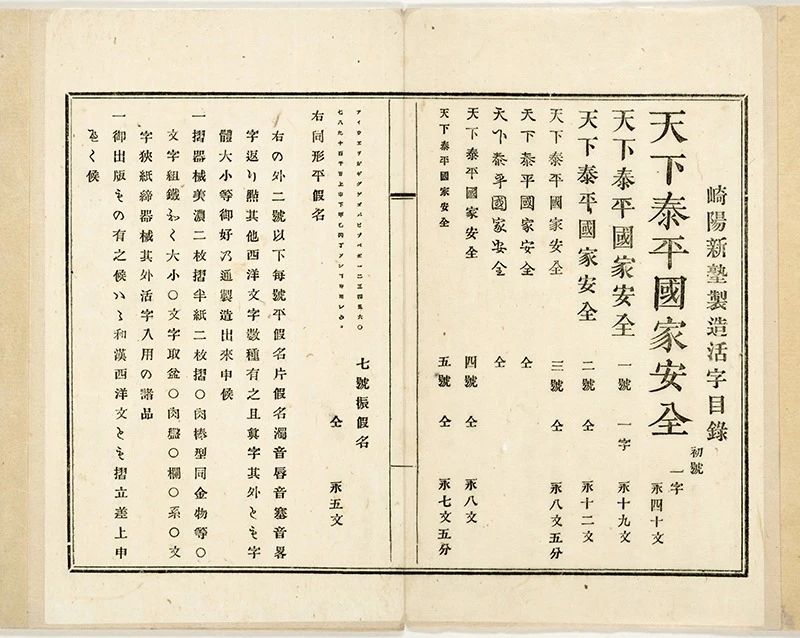 崎陽新塾製造活字目錄
天下泰平國家安全 初號 一字 永四十文
天下泰平國家安全 一號 一字 永十九文
天下泰平國家安全 二號 仝 永十二文
天下泰平國家安全 三號 仝 永八文五分
天下泰平國家安全 仝
天下泰平國家安全 仝
天下泰平國家安全 四號 仝 永八文
天下泰平國家安全 五號 仝 永七文五分
七號振假名 仝 永五文
右同形平假名
右の外二號以下每號平假名片假名濁音唇音塞音畧
字返り點其他西洋文字數種有之且眞字其外とも字
體大小等御好乃通製造出來申候
一摺器械美濃二枚摺半紙二枚摺〇肉棒型同金物等〇
文字組鐵わく大小〇文字取盆〇肉盤〇欄〇系〇文
字狹紙締器械其外活字入用の諸品
一御出版もの有之候ハヽ和漢西洋文とも摺立差上申
べく候